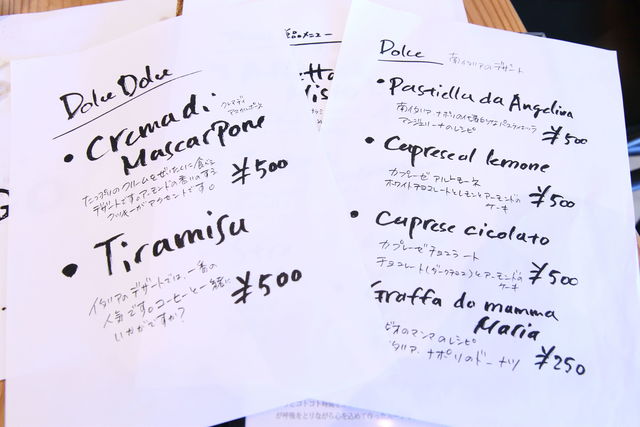 Dolce Dolce
• Crema di
Mascarpone
たっぷりのクリームをぜいたくに食べる
デザートです。アーモンドの香りのする
クッキーがアクセントです。
¥500
• Tiramisu
イタリアのデザートでは、一番の
人気です。コーヒーと一緒に
いかがですか?
¥500
Dolce 南イタリアのデザート
• Pastiella da Angelina
南イタリア ナポリの
アンジェリーナのレシピ
¥500
• Caprese al lemone
カプレーゼ アルレモーネ
ホワイトチョコレートとレモンとアーモンドの
ケーキ
¥500
• Caprese cicolato
カプレーゼチョコラート
チョコレート(ダークチョコ)とアーモンドの
ケーキ
¥500
Graffa da mamma
Maria
ピオのマンマのレシピ
イタリア、ナポリのドーナツ
¥250